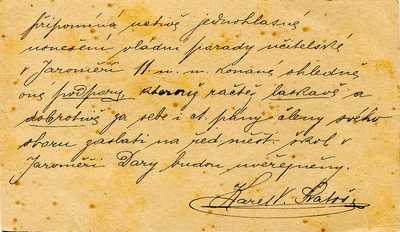 připomíná uctivě jednohlasné
usnešení vládní porady učitelské
v Jaroměři 11. m. m. konané ohledně
oné podpory, kterouž račtež laskavě a
dobrotivě za sebe i ct. pány členy svého
sboru zaslati na řed. měst. škol v
Jaroměři. Dary budou uveřejněny.
Karel V.